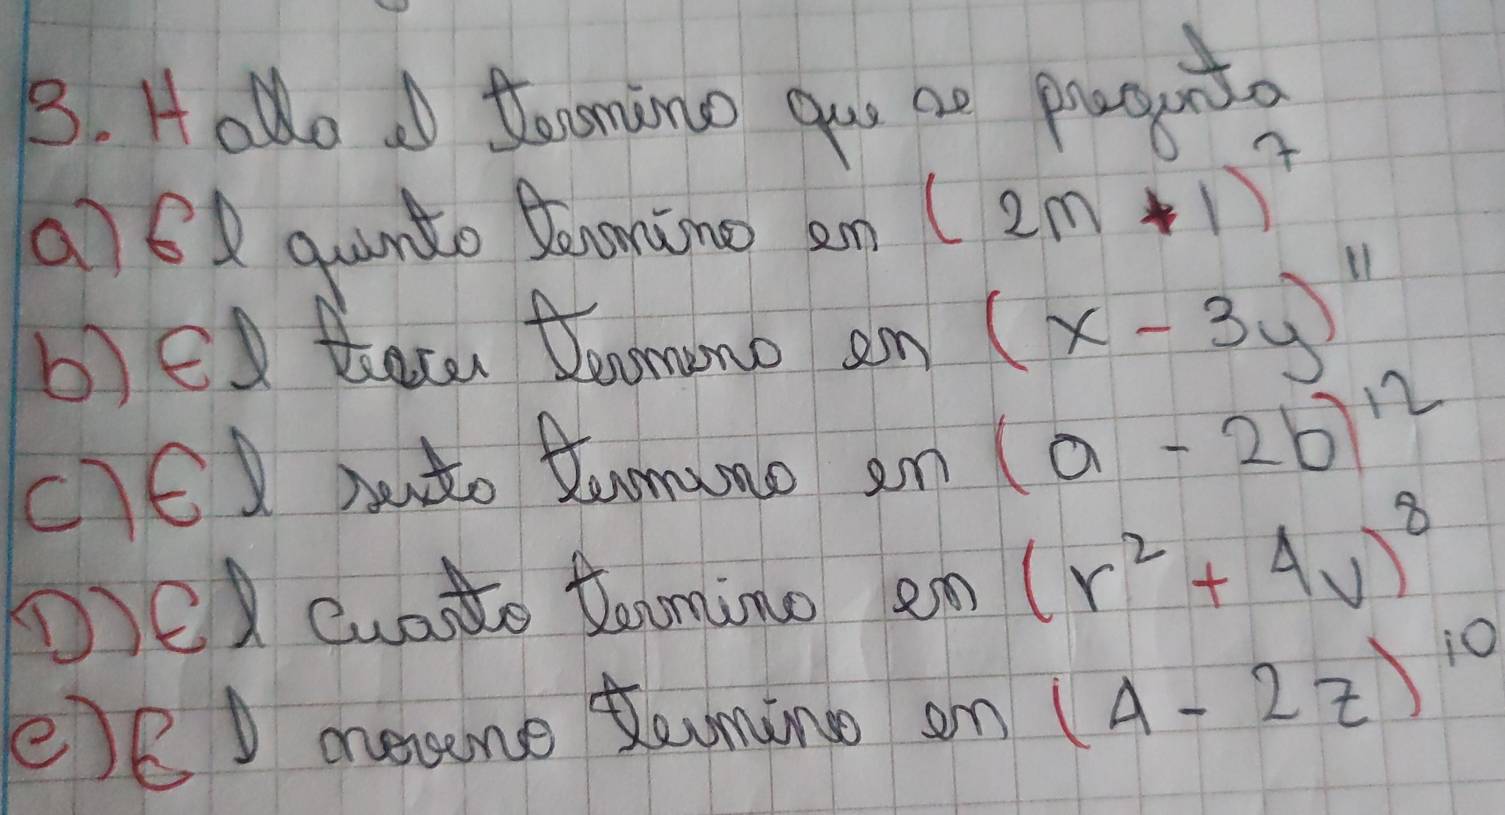 3. Halla el termino que se pregunta
a) El quinto termino en (2m + 1)⁷
b) El tercer termino en (x - 3y)¹¹
c) El sexto termino en (a - 2b)¹²
D) El cuarto termino en (r² + 4v)⁸
e) El noveno termino en (4 - 2z)¹⁰